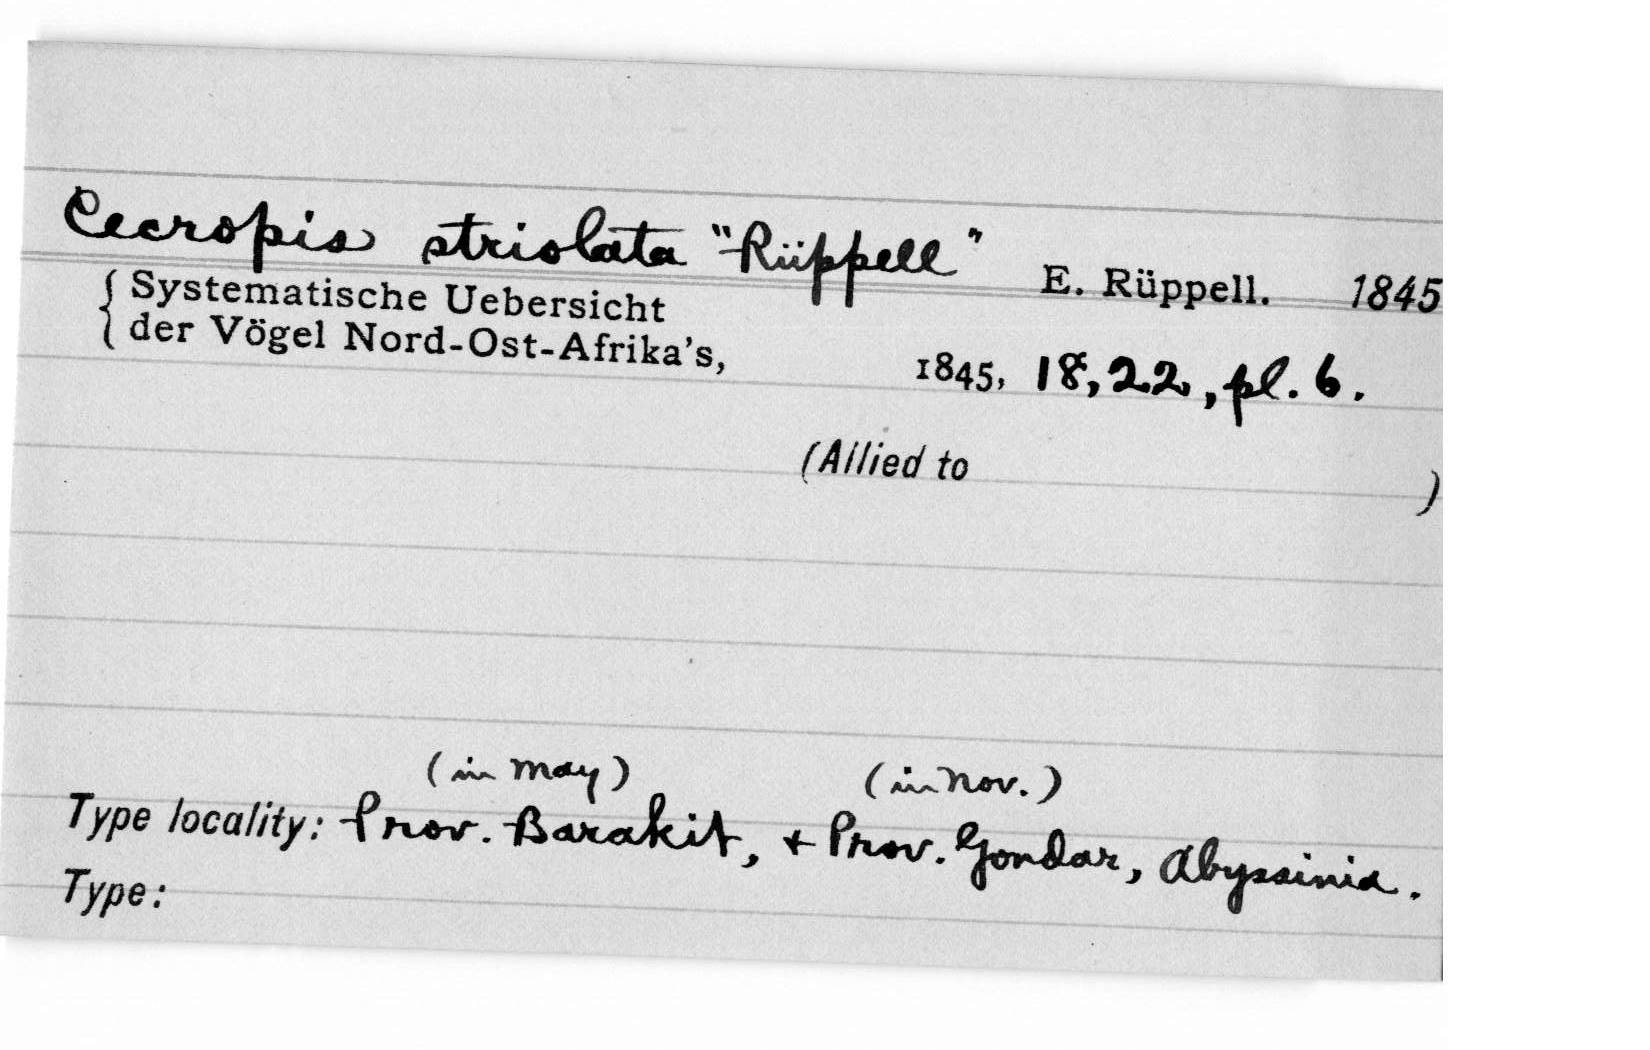 Cecropis striolata "Rüppell" E. Rüppell. 1845
Systematische Uebersicht
der Vögel Nord-Ost-Afrika's, 1845, 18, 22, pl. 6.
(Allied to )
(in May) (in Nov.)
Type locality: Prov. Barakit, + Prov. Gondar, Abyssinia.
Type: